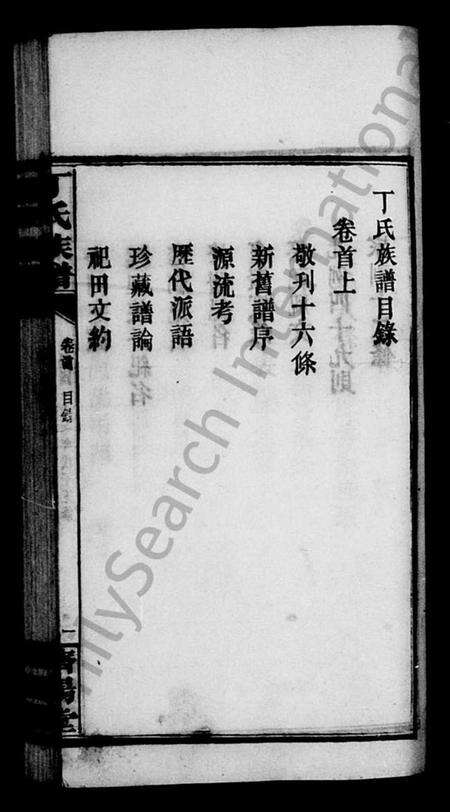 丁氏族譜目錄
卷首上
敬刊十六條
新舊譜序
源流考
歷代派語
珍藏譜論
祀田文約
丁氏族譜
卷首
目錄
一
濟陽堂
FamilySearch International